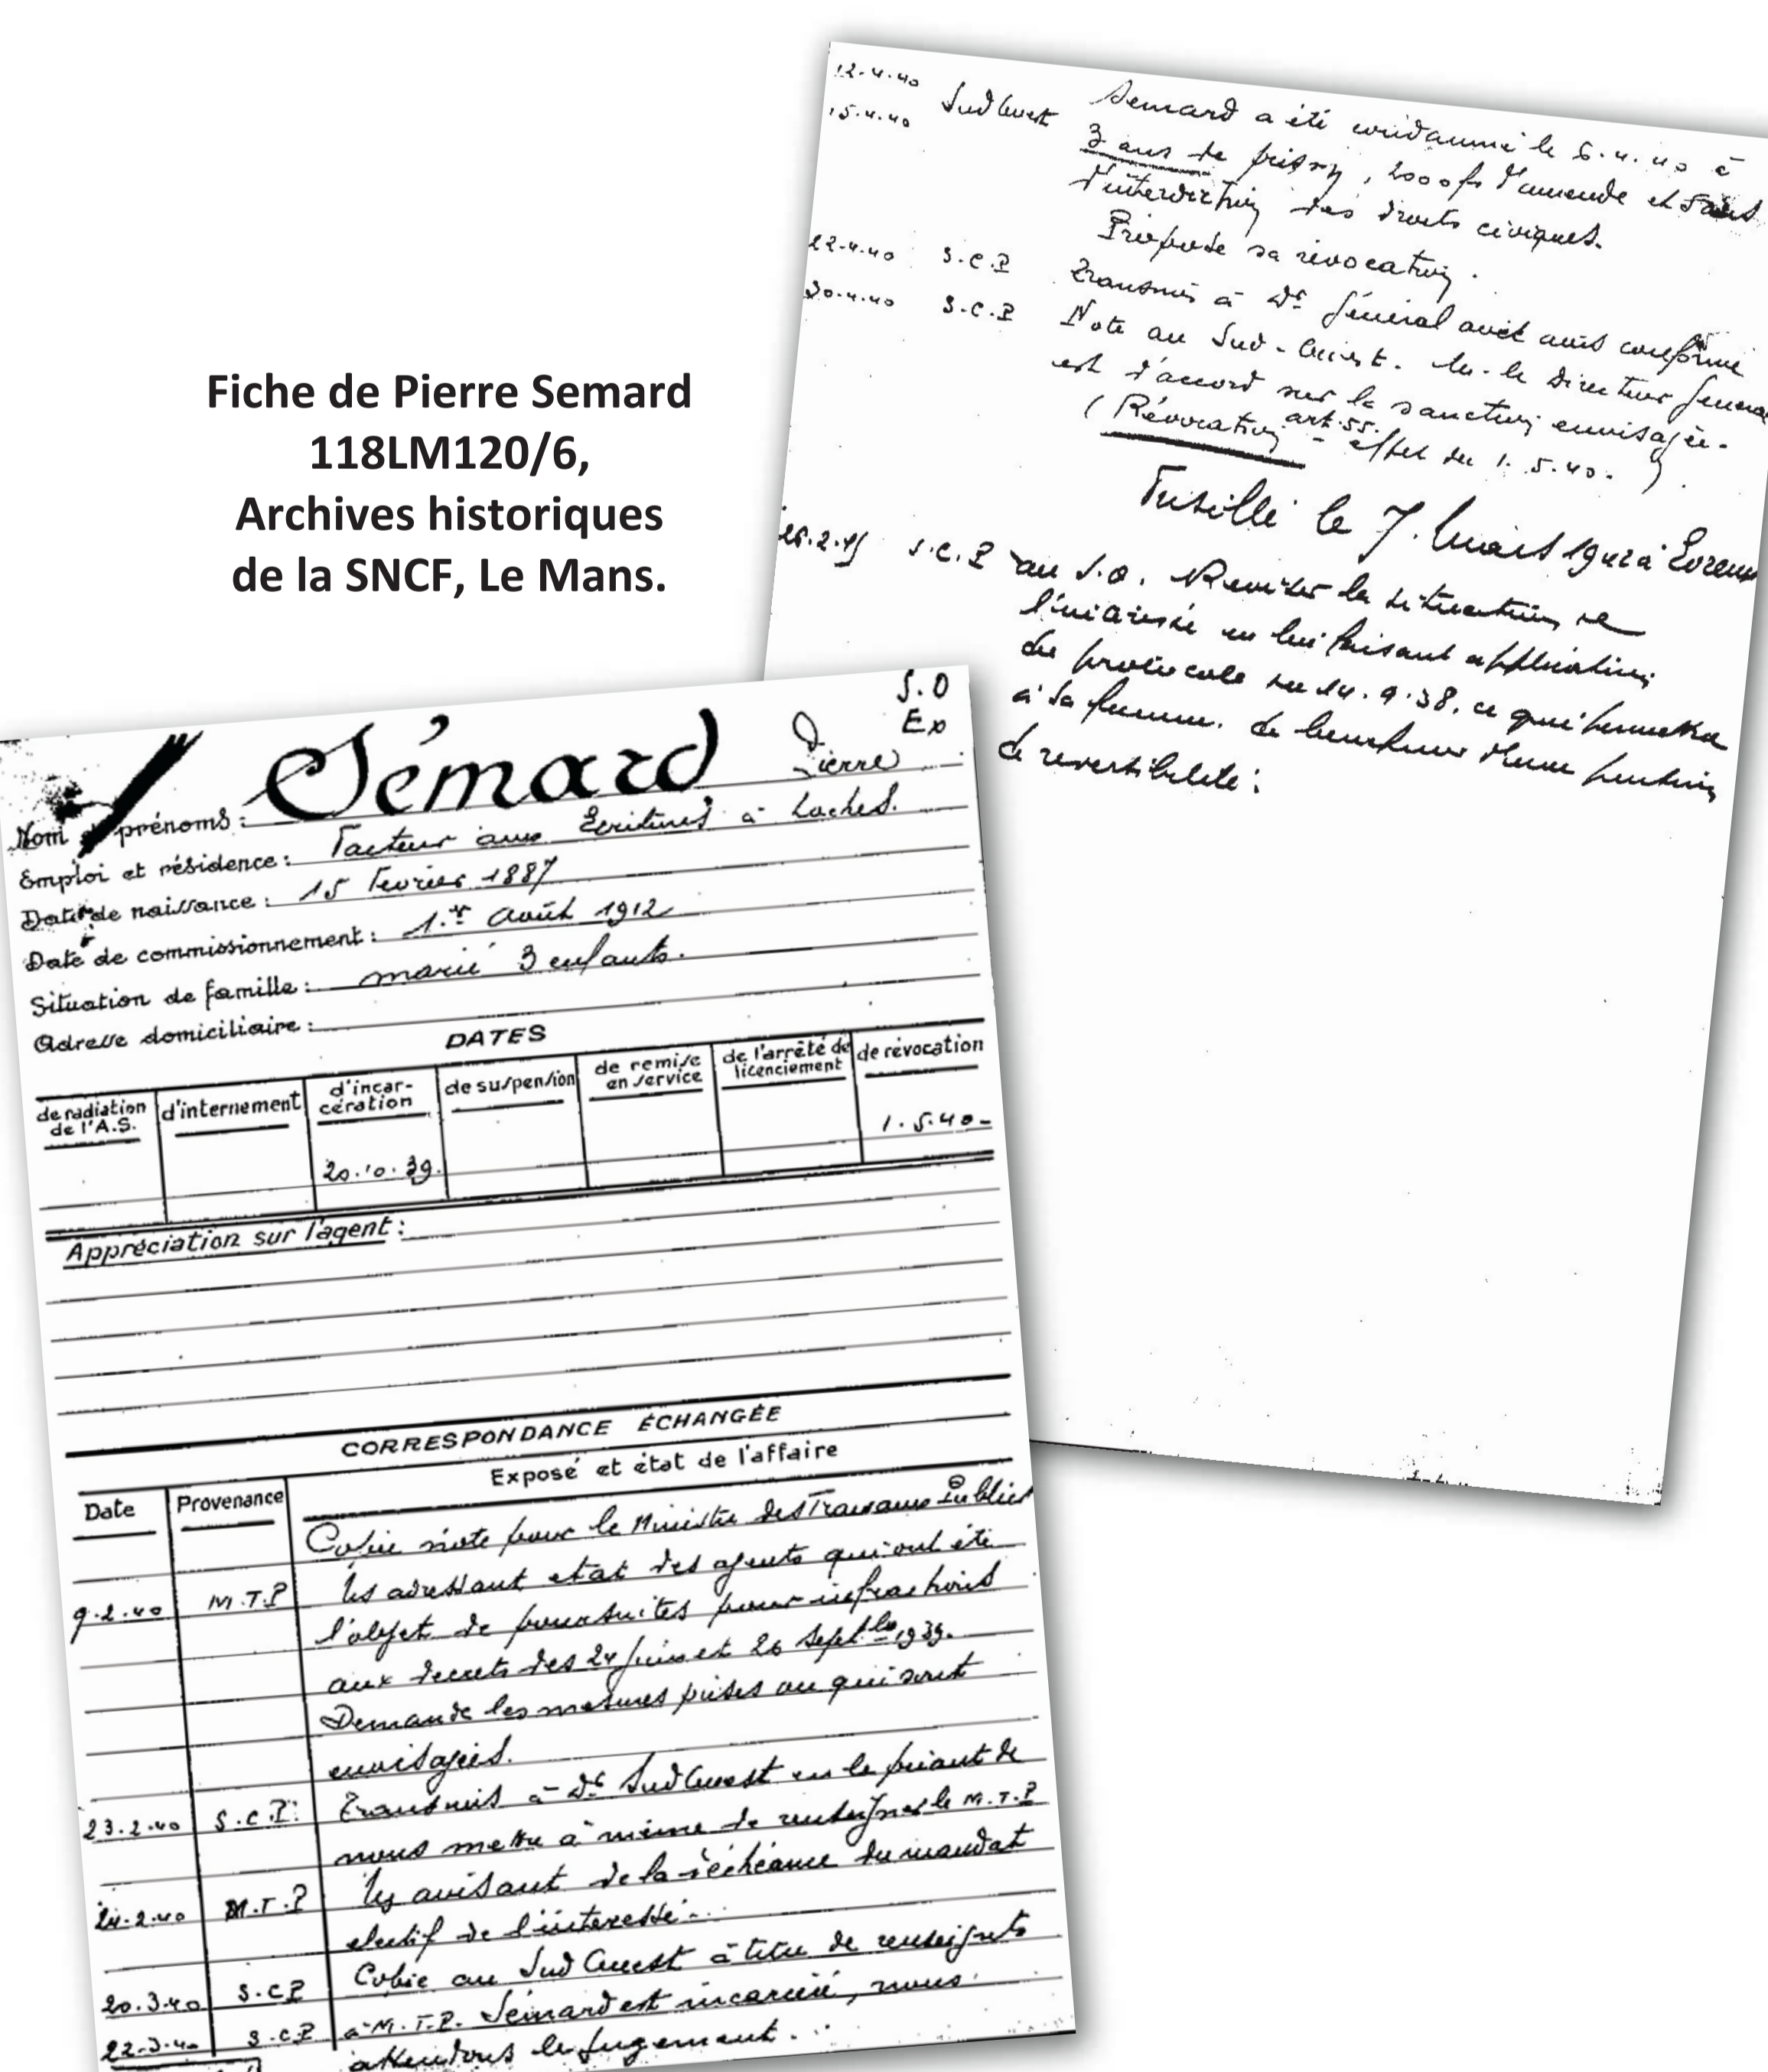 Fiche de Pierre Semard
118LM120/6,
Archives historiques
de la SNCF, Le Mans.
12-4-40
15-4-40 Sud Ouest Semard a été condamné le 6.4.40 à
3 ans de prison, 2000 fs d'amende et 5 ans
d'interdiction des droits civiques.
Propose sa révocation.
22-4-40 S.C.P Transmis à Dr Général avec avis conforme
30-4-40 S.C.P Note au Sud-Ouest. M. le Directeur Général
est d'accord sur la sanction envisagée.
(Révocation art.55. - effet du 1.5.40. ).
Fusillé le 7. Mars 1942 à Evreux
26.2.45 S.C.P au S.O. Reviser la situation de
l'intéressé en lui faisant application
du protocole du 14.9.38, ce qui permettra
à sa femme de bénéficier d'une pension
de reversibilité.
S.O
Ex
Nom prénoms : Sémard Pierre
Emploi et résidence : Facteur aux Ecritures à Loches.
Date de naissance : 15 Fevrier 1887
Date de commissionnement : 1.er Août 1912
Situation de famille : marié 3 enfants.
Adresse domiciliaire :
DATES
de radiation de l'A.S. d'internement d'incarcération de suspension de remise en service de l'arrêté de licenciement de révocation
20.10.39. 1.5.40-
Appréciation sur l'agent :
CORRESPONDANCE ÉCHANGÉE
Date Provenance Exposé et état de l'affaire
Copie note pour le Ministre des Travaux Publics
9.2.40 M.T.P les adressant etat des agents qui ont été
l'objet de poursuites pour infractions
aux decrets des 24 Juin et 26 Septbre 1939.
Demande les mesures prises ou qui sont
envisagées.
23.2.40 S.C.P. Transmis à Dr Sud Ouest en le priant de
nous mettre à même de renseigner le M.T.P
24.2.40 M.T.P les avisant de la déchéance du mandat
electif de l'intéressé.
20.3.40 S.C.P Copie au Sud Ouest à titre de renseignts
22-3-40 S.C.P à M.T.P. Sémard est incarcéré, nous
attendons le jugement.